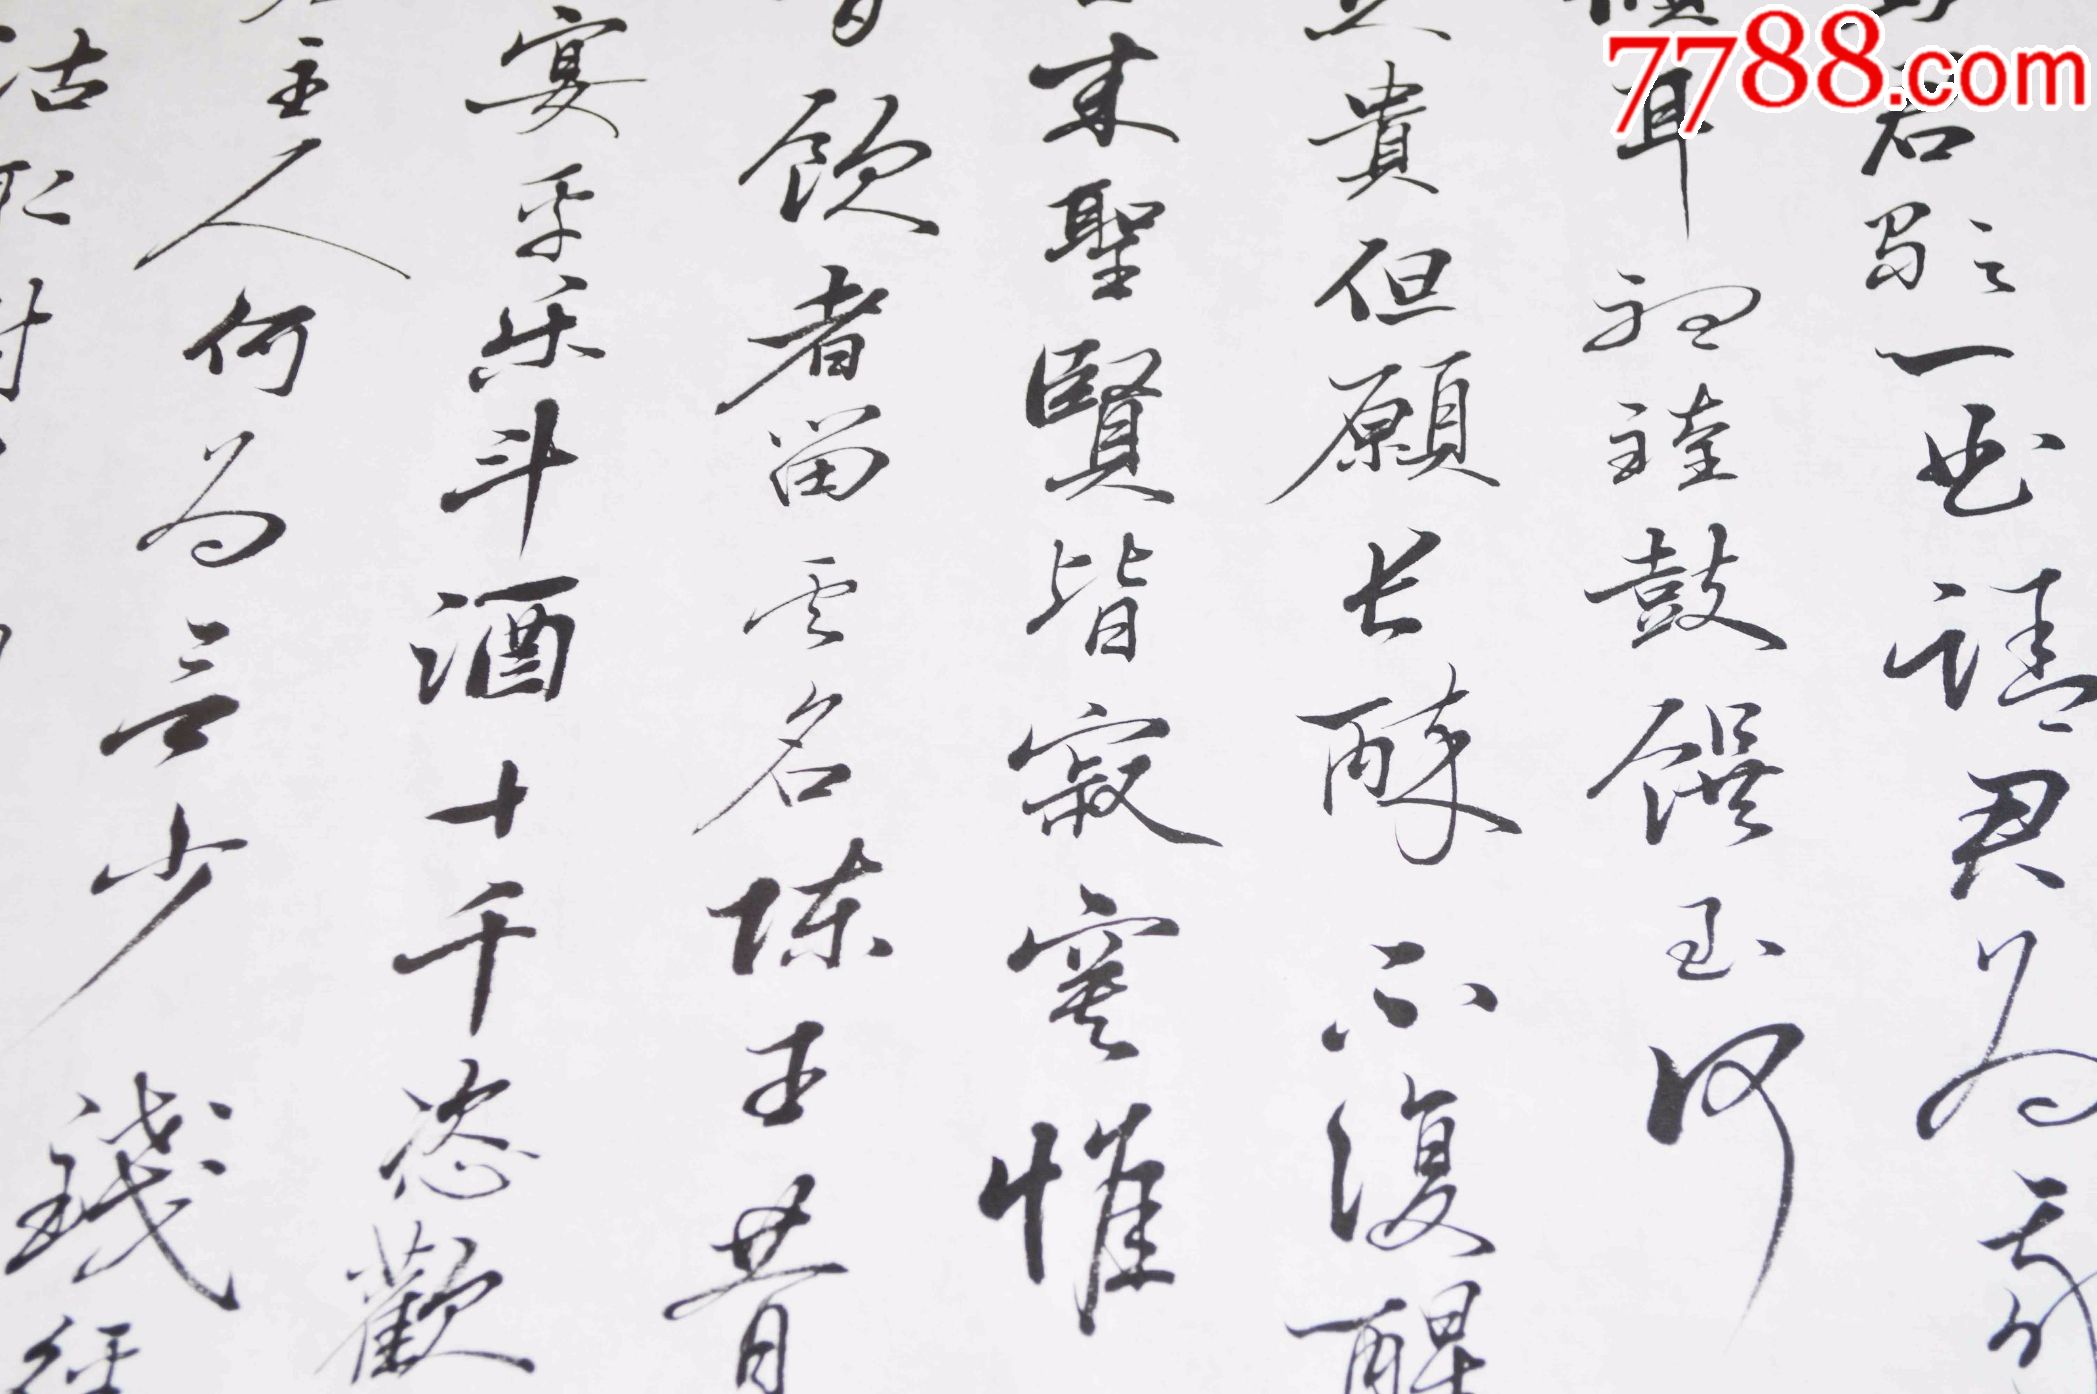 7788.com
君歌一曲請君为
耳聽鐘鼓饌玉何
貴但願长醉不復醒
来聖賢皆寂寞惟
飲者留其名陳王昔
宴平乐斗酒十千恣歡
主人何为言少錢径
沽取对